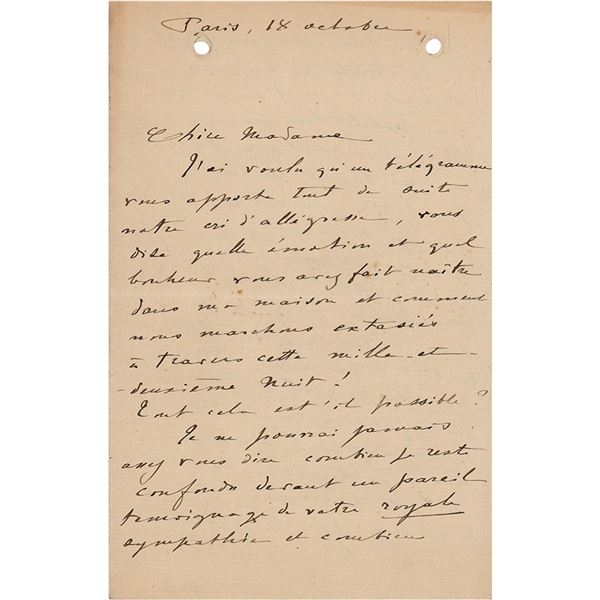 Paris, 18 octobre
Chère Madame
J'ai voulu qu'un télégramme
vous apporte tout de suite
notre cri d'allégresse, vous
dise quelle émotion et quel
bonheur vous avez fait naître
dans ma maison et comment
nous marchons extasiés
à travers cette mille-et-
-deuxième Nuit!
Tout cela est-il possible?
Je ne pourrai jamais
assez vous dire combien je reste
confondu devant un pareil
témoignage de votre royale
sympathie et combien